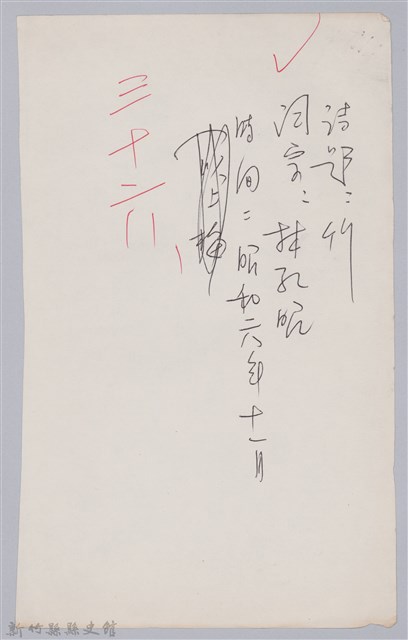 詩題：竹
詞宗：林孔昭
時間：昭和六年十一月
三十六
新竹縣縣史館